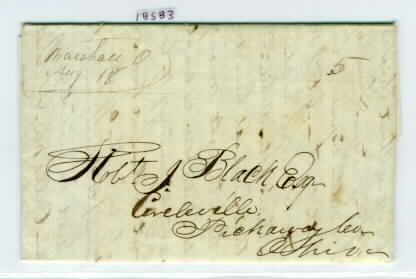 18583
Marshall O
Aug 18
5
Robt J Black, Esq
Circleville
Pickaway Co
Ohio